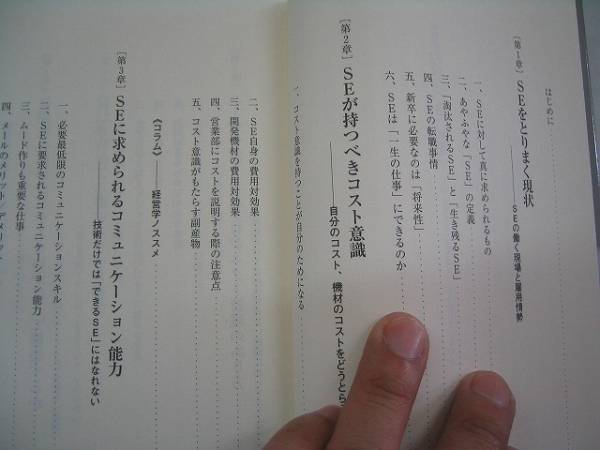 はじめに
[第1章] SEをとりまく現状
――SEの働く現場と雇用情勢
一、SEに対して真に求められるもの
二、あやふやな「SE」の定義
三、「淘汰されるSE」と「生き残るSE」
四、SEの転職事情
五、新卒に必要なのは「将来性」
六、SEは「一生の仕事」にできるのか
[第2章] SEが持つべきコスト意識
――自分のコスト、機材のコストをどうとら
一、コスト意識を持つことが自分のためになる
二、SE自身の費用対効果
三、開発機材の費用対効果
四、営業部にコストを説明する際の注意点
五、コスト意識がもたらす副産物
《コラム》――経営学ノススメ
[第3章] SEに求められるコミュニケーション能力
――技術だけでは「できるSE」にはなれない
一、必要最低限のコミュニケーションスキル
二、SEに要求されるコミュニケーション能力
三、ムード作りも重要な仕事
四、メールのメリット／デメリット